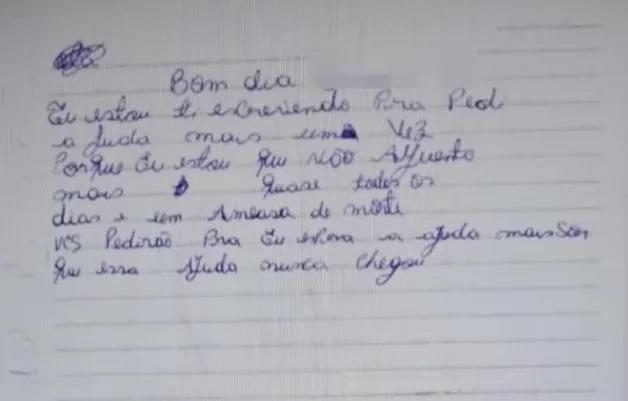 Bom dia
Eu estou ti escrevendo Pra Ped
a Juda mais uma Vez
Porque Eu estou que NÃO AGuento
mais quase todos os
dias e um Ameasa de morte
vcs Pedirão Pra Eu a ajuda mais
que essa AJuda nunca chegou